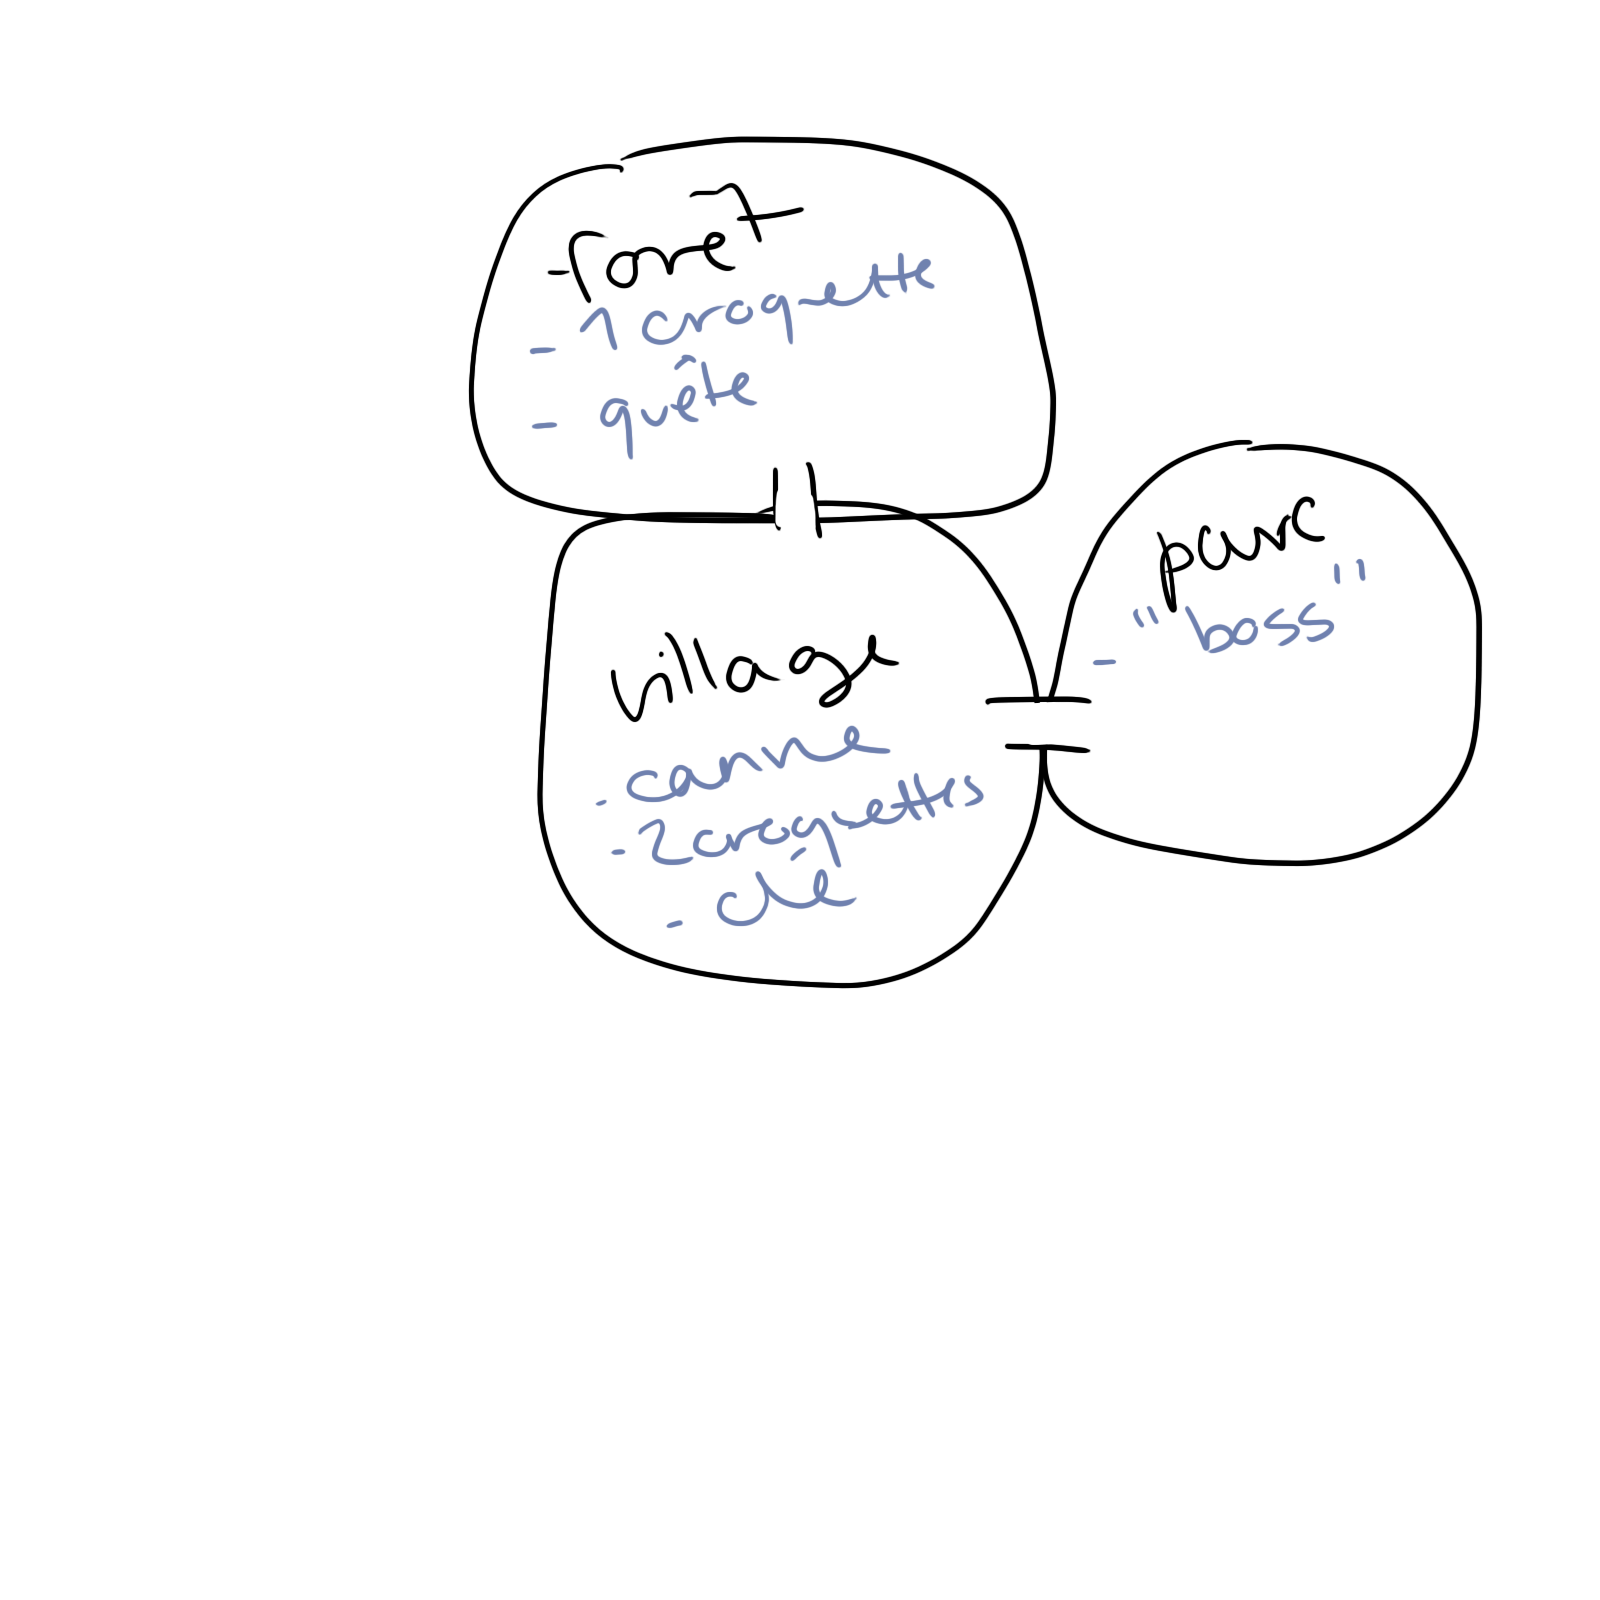 forêt
- 1 croquette
- quête
village
- canne
- 2 croquettes
- clé
parc
- "boss"